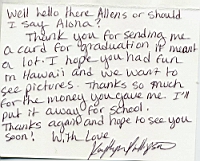 Well hello there Allens or should
I say Aloha?
Thank you for sending me
a card for graduation it meant
a lot. I hope you had fun
in Hawaii and we want to
see pictures. Thanks so much
for the money you gave me. I'll
put it away for school.
Thanks again and hope to see you
soon! With Love